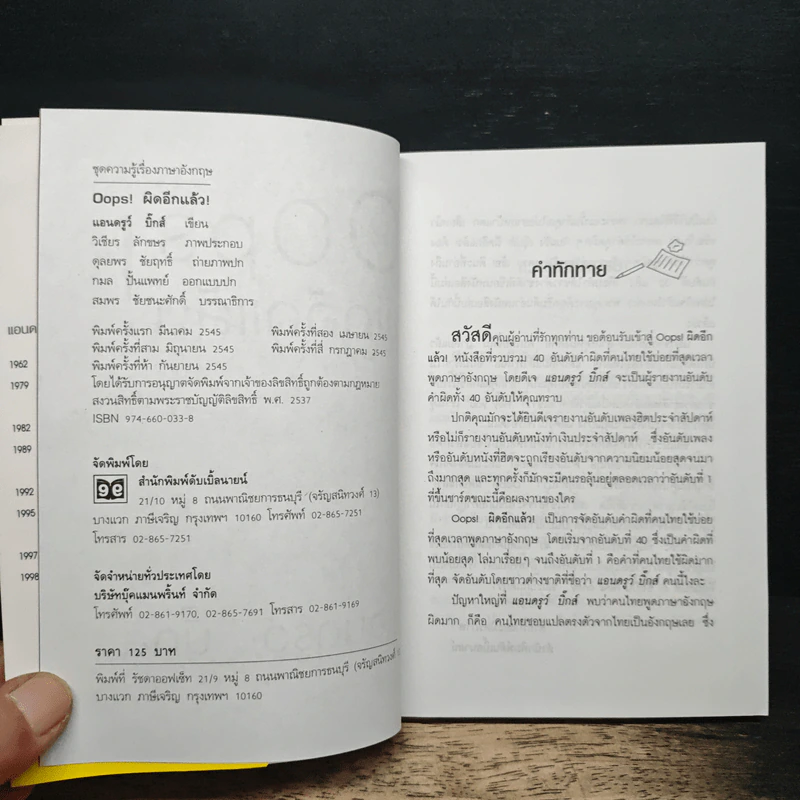 แอนด
1962
1979
1982
1989
1992
1995
1997
1998
ชุดความรู้เรื่องภาษาอังกฤษ
Oops! ผิดอีกแล้ว!
แอนดรูว์ บิ๊กส์ เขียน
วิเชียร ลักขษร ภาพประกอบ
ตุลยพร ชัยฤทธิ์ ถ่ายภาพปก
กมล ปั้นแพทย์ ออกแบบปก
สมพร ชัยชนะศักดิ์ บรรณาธิการ
พิมพ์ครั้งแรก มีนาคม 2545 พิมพ์ครั้งที่สอง เมษายน 2545
พิมพ์ครั้งที่สาม มิถุนายน 2545 พิมพ์ครั้งที่สี่ กรกฎาคม 2545
พิมพ์ครั้งที่ห้า กันยายน 2545
โดยได้รับการอนุญาตจัดพิมพ์จากเจ้าของลิขสิทธิ์ถูกต้องตามกฎหมาย
สงวนสิทธิ์ตามพระราชบัญญัติลิขสิทธิ์ พ.ศ. 2537
ISBN 974-660-033-8
จัดพิมพ์โดย
สำนักพิมพ์ดับเบิ้ลนายน์
21/10 หมู่ 8 ถนนพาณิชยการธนบุรี (จรัญสนิทวงศ์ 13)
บางแวก ภาษีเจริญ กรุงเทพฯ 10160 โทรศัพท์ 02-865-7251
โทรสาร 02-865-7251
จัดจำหน่ายทั่วประเทศโดย
บริษัทบุ๊คแมนพริ้นท์ จำกัด
โทรศัพท์ 02-861-9170, 02-865-7691 โทรสาร 02-861-9169
ราคา 125 บาท
พิมพ์ที่ รัชดาออฟเซ็ท 21/9 หมู่ 8 ถนนพาณิชยการธนบุรี (จรัญสนิทวงศ์
บางแวก ภาษีเจริญ กรุงเทพฯ 10160
คำทักทาย
สวัสดีคุณผู้อ่านที่รักทุกท่าน ขอต้อนรับเข้าสู่ Oops! ผิดอีก
แล้ว! หนังสือที่รวบรวม 40 อันดับคำผิดที่คนไทยใช้บ่อยที่สุดเวลา
พูดภาษาอังกฤษ โดยดีเจ แอนดรูว์ บิ๊กส์ จะเป็นผู้รายงานอันดับ
คำผิดทั้ง 40 อันดับให้คุณทราบ
ปกติคุณมักจะได้ยินดีเจรายงานอันดับเพลงฮิตประจำสัปดาห์
หรือไม่ก็รายงานอันดับหนังทำเงินประจำสัปดาห์ ซึ่งอันดับเพลง
หรืออันดับหนังที่ฮิตจะถูกเรียงอันดับจากความนิยมน้อยสุดจนมา
ถึงมากสุด และทุกครั้งก็มักจะมีคนรอลุ้นอยู่ตลอดเวลาว่าอันดับที่ 1
ที่ขึ้นชาร์ตขณะนี้คือผลงานของใคร
Oops! ผิดอีกแล้ว! เป็นการจัดอันดับคำผิดที่คนไทยใช้บ่อย
ที่สุดเวลาพูดภาษาอังกฤษ โดยเริ่มจากอันดับที่ 40 ซึ่งเป็นคำผิดที่
พบน้อยสุด ไล่มาเรื่อยๆ จนถึงอันดับที่ 1 คือคำที่คนไทยใช้ผิดมาก
ที่สุด จัดอันดับโดยชาวต่างชาติที่ชื่อว่า แอนดรูว์ บิ๊กส์ คนนี้ไงละ
ปัญหาใหญ่ที่ แอนดรูว์ บิ๊กส์ พบว่าคนไทยพูดภาษาอังกฤษ
ผิดมาก ก็คือ คนไทยชอบแปลตรงตัวจากไทยเป็นอังกฤษเลย ซึ่ง